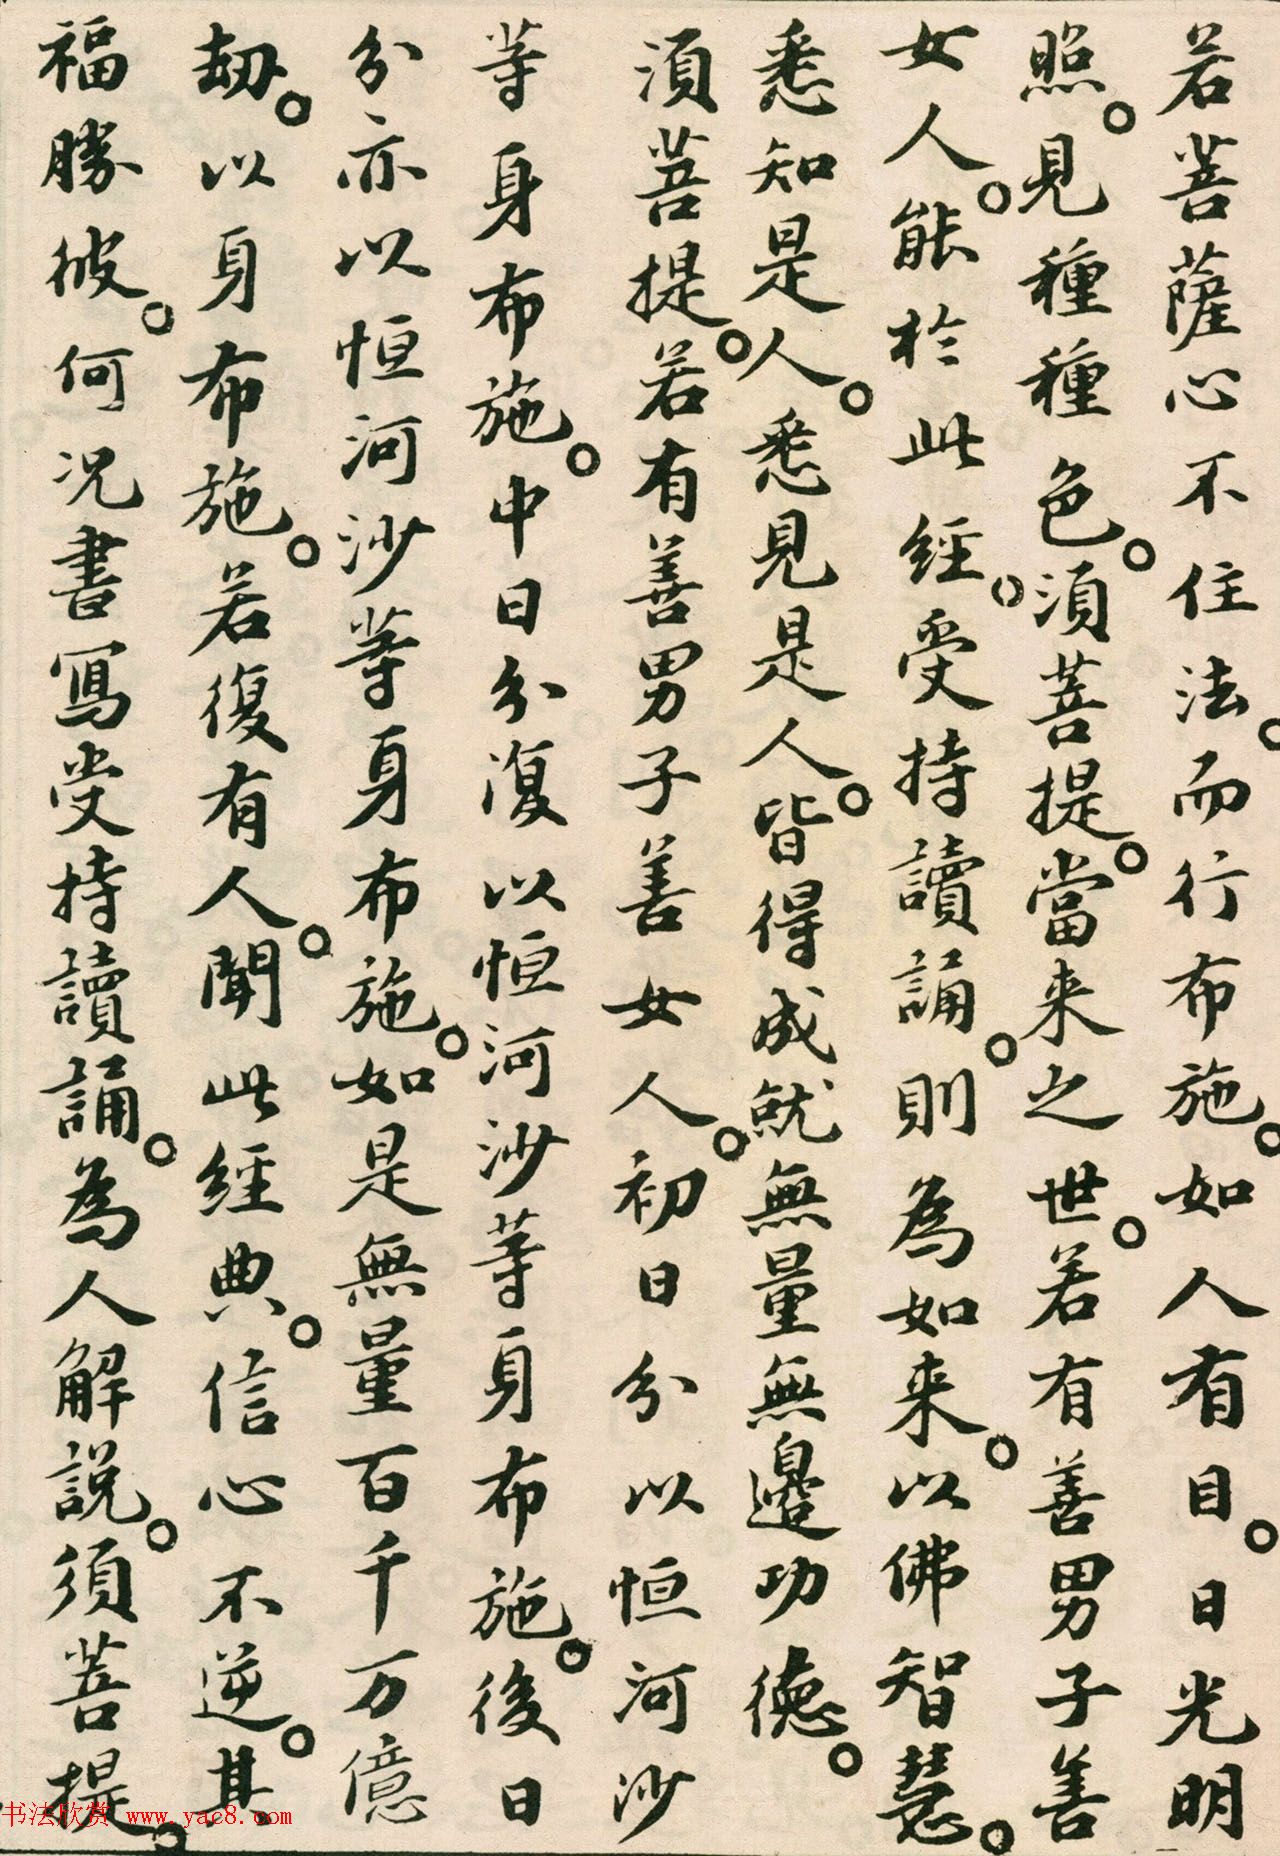 若菩薩心不住法。而行布施。如人有目。日光明
照。見種種色。須菩提。當来之世。若有善男子善
女人。能於此經。受持讀誦。則為如来。以佛智慧。
悉知是人。悉見是人。皆得成就無量無邊功德。
須菩提。若有善男子善女人。初日分以恒河沙
等身布施。中日分復以恒河沙等身布施。後日
分亦以恒河沙等身布施。如是無量百千万億
劫。以身布施。若復有人。聞此經典。信心不逆。其
福勝彼。何况書寫受持讀誦。為人解說。須菩提。
书法欣赏 www.yac8.com